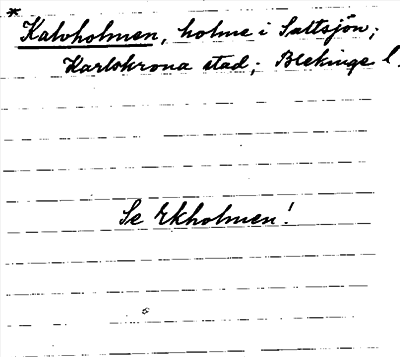 * Kalvholmen, holme i Saltsjön;
Karlskrona stad; Blekinge l.
Se Ekholmen!